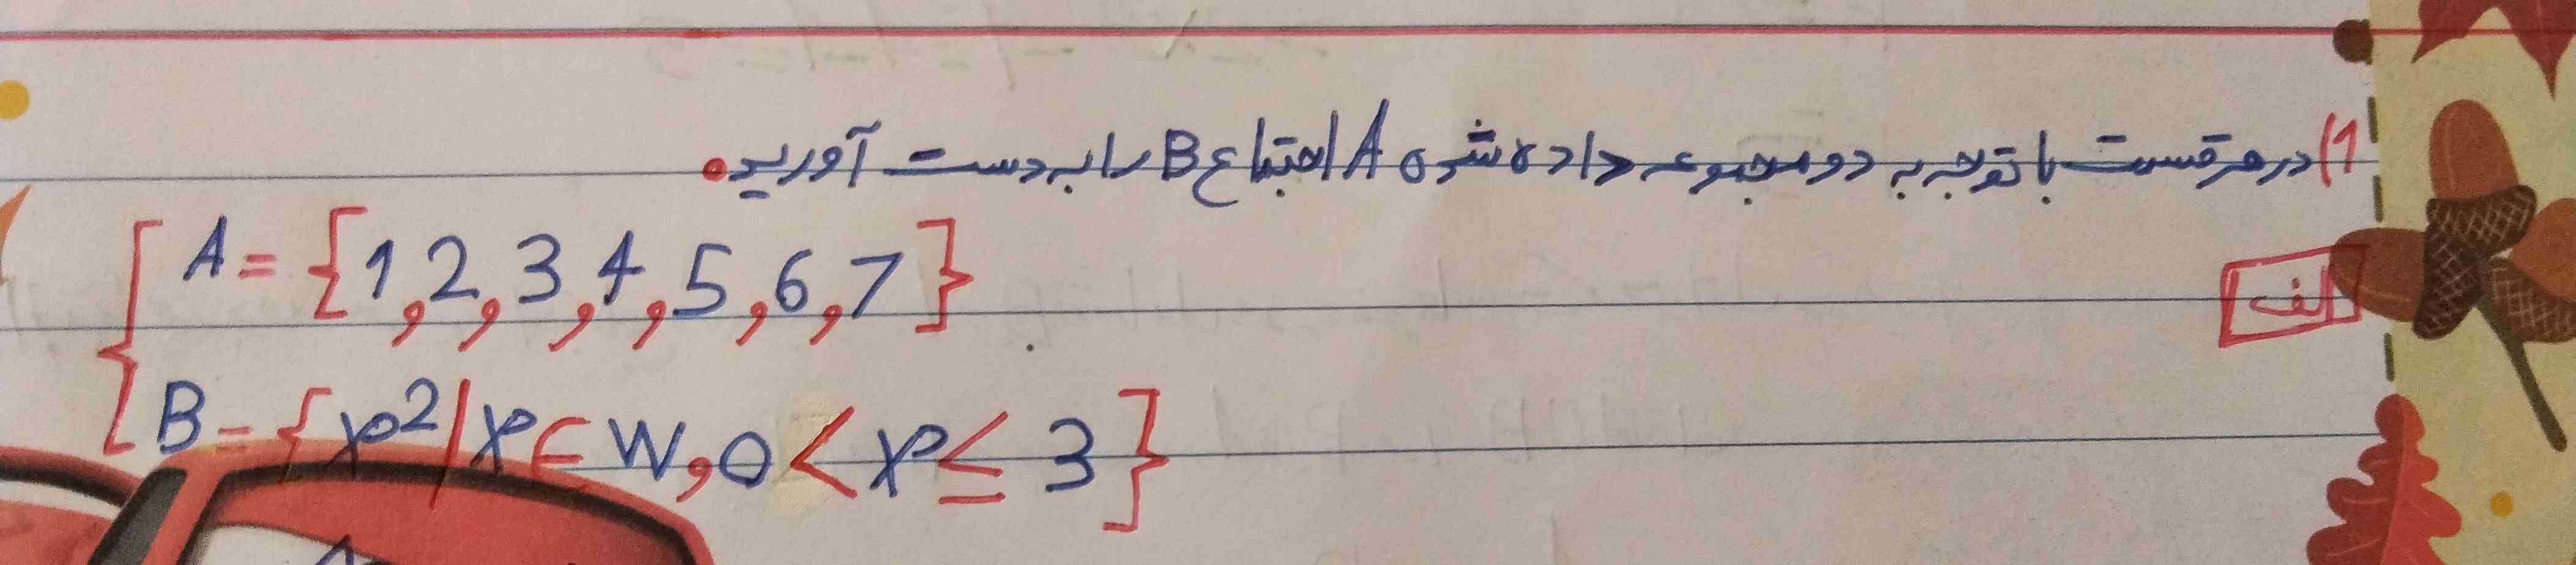 1) در هر قسمت با توجه به دو مجموعه داده شده A اجتماع B را به دست آورید.
الف
A = {1, 2, 3, 4, 5, 6, 7}
B = {x² | x ∈ W, 0 < x ≤ 3}